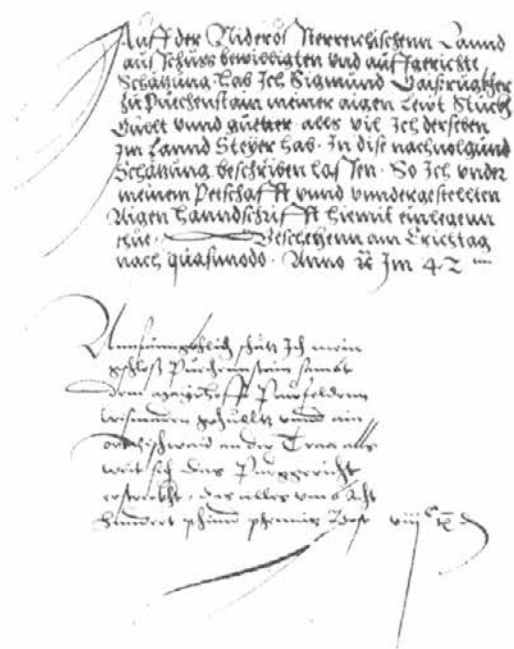 Auff der Niderösterreichischenn Lannd
ausschuss bewilligten vnd auffgerichte
Schatzung hab Ich Sigmund
zu Puechenstain meiner aigen Lewt Stuckh
Guelt vnnd güetter alls vil Ich derselben
Im Lannd Steyer hab. In dise nachuolgund
Schatzung beschriben lassen. So Ich vnder
meinem Petschafft vnnd vnndergestellten
Aigen Hanndschrifft hiemit einlegenn
thue. Beschehenn am Erichtag
nach quasimodo. Anno Im 42
schätz Ich mein
gschloß Puechennstein sambt
dem mayrhoff
vnnd ain
an der Traa alls
weit sich das Purggericht
erstreckht, das alles vmb Acht
Hundert phund phening